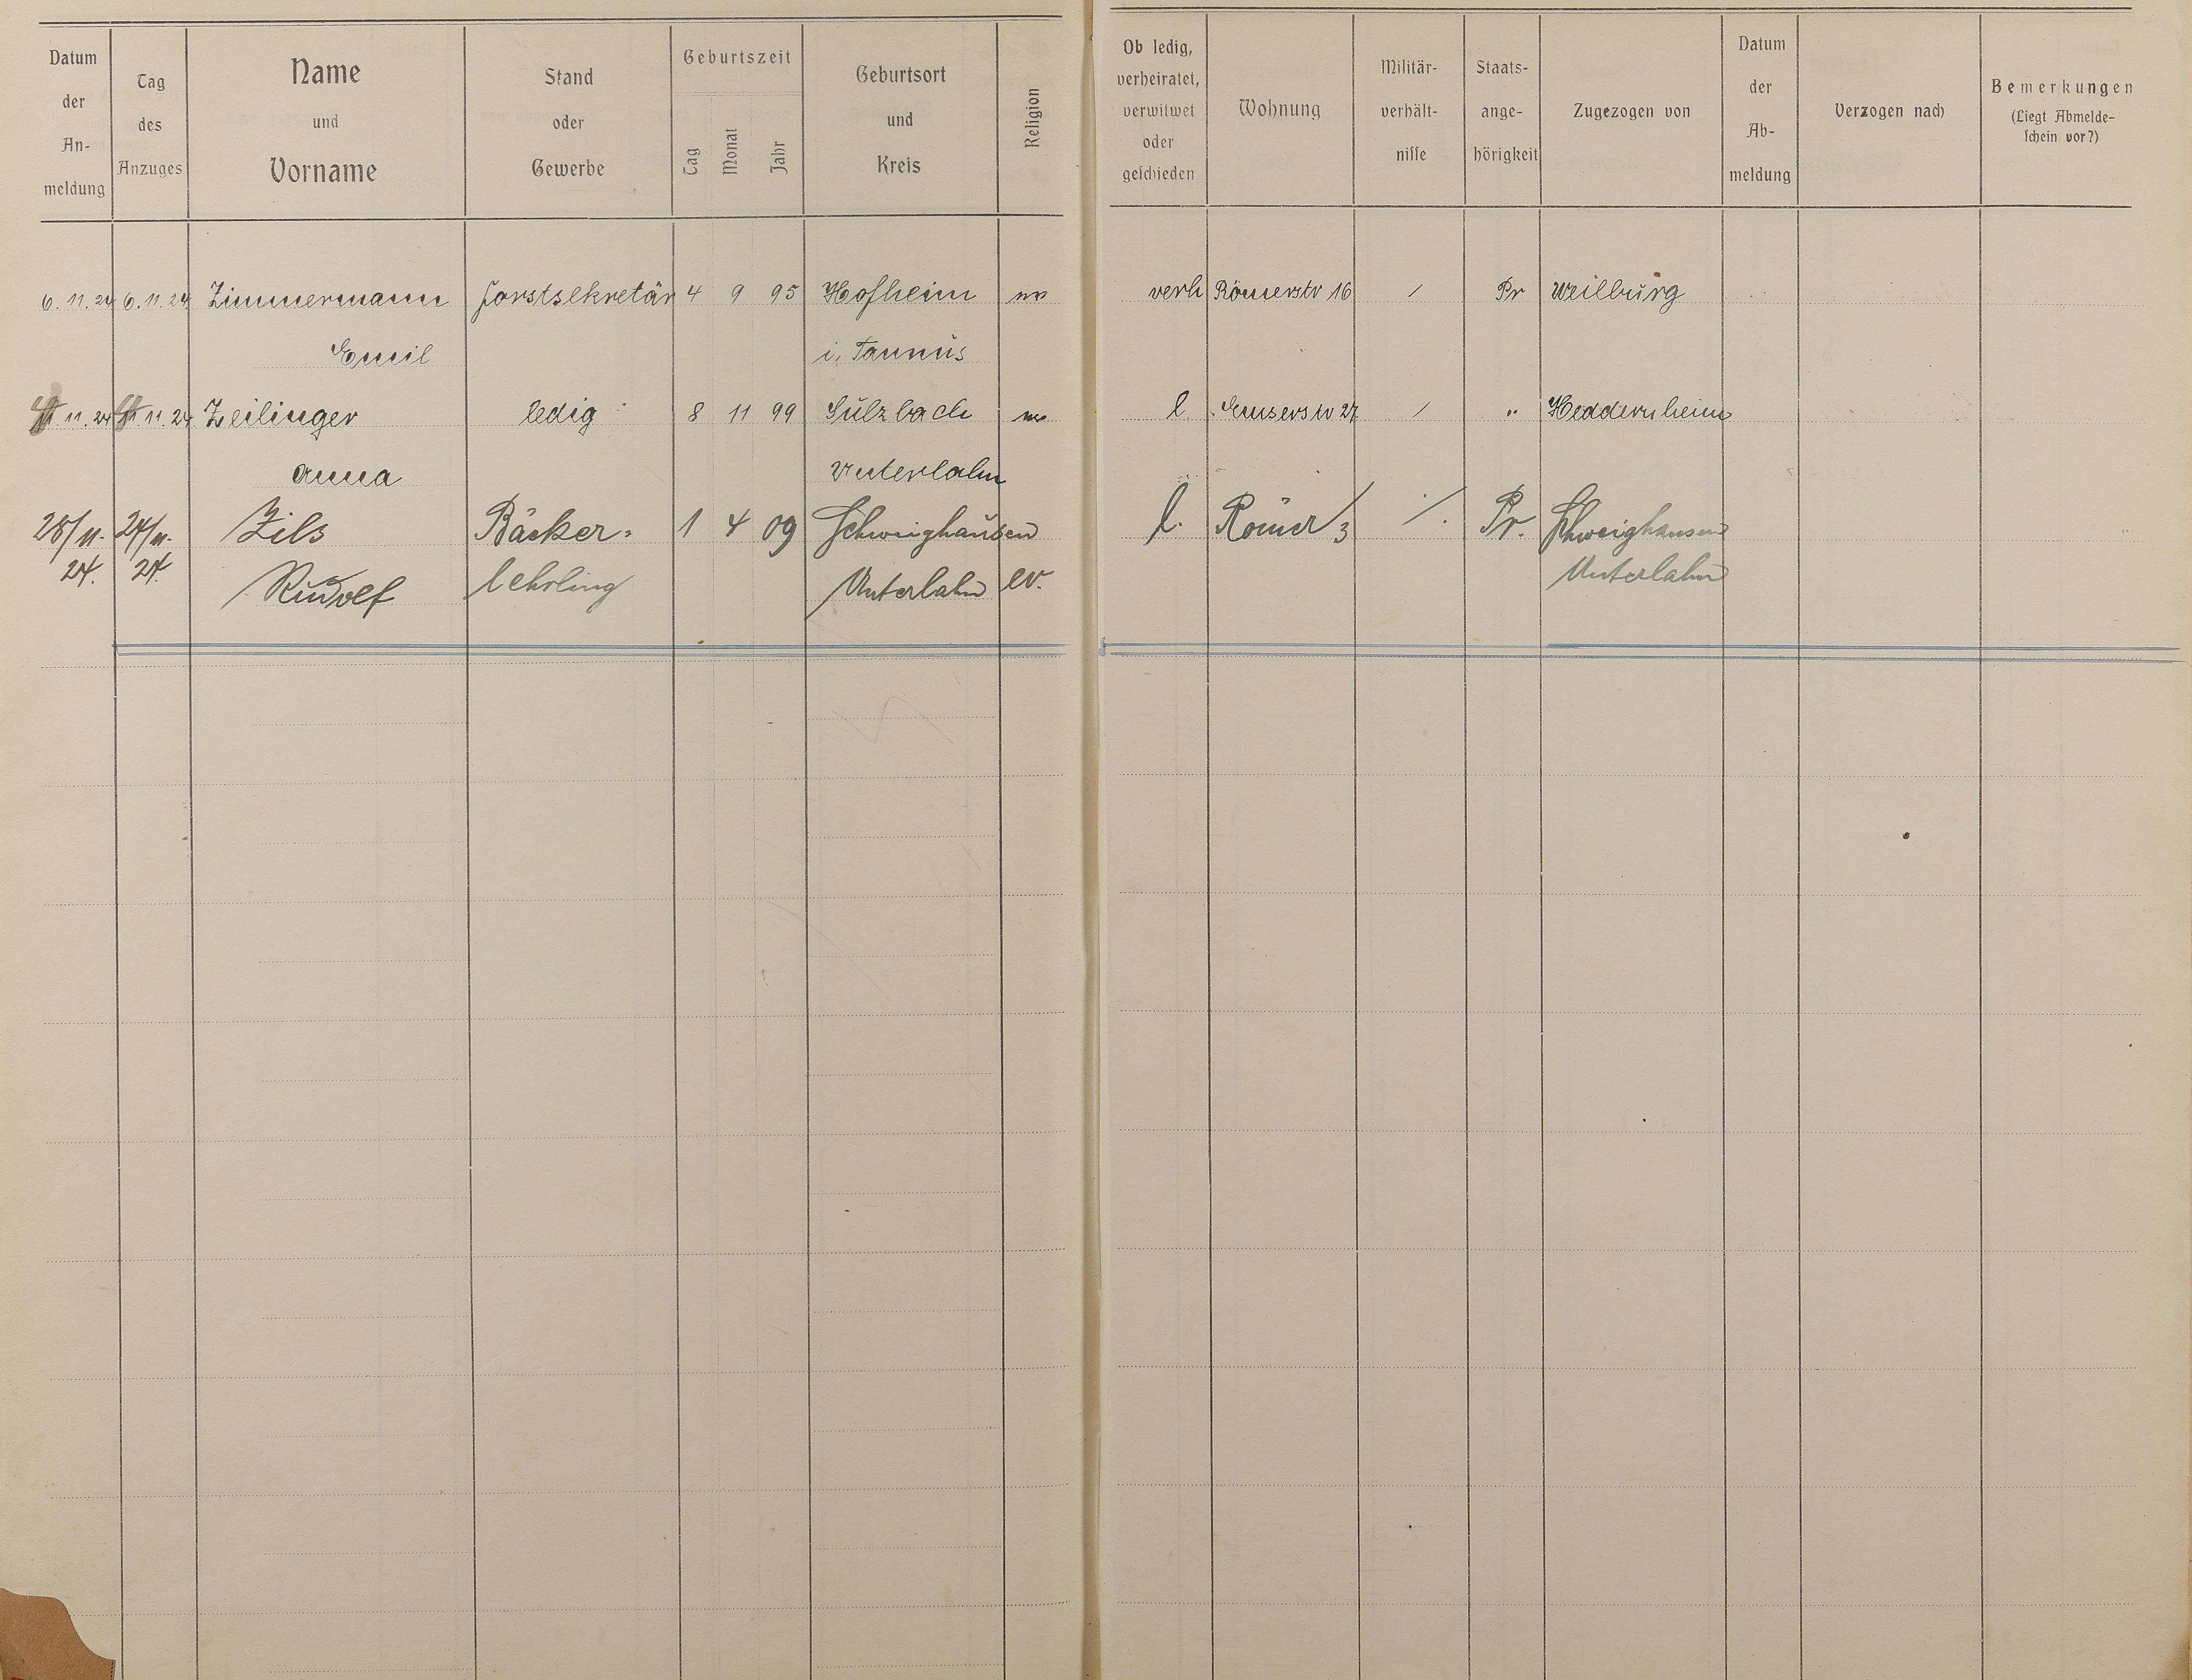 Datum der An-meldung | Tag des Anzuges | Name und Vorname | Stand oder Gewerbe | Geburtszeit Tag Monat Jahr | Geburtsort und Kreis | Religion | Ob ledig, verheiratet, verwitwet oder geschieden | Wohnung | Militär-verhält-nisse | Staats-ange-hörigkeit | Zugezogen von | Datum der Ab-meldung | Verzogen nach | Bemerkungen (Liegt Abmelde-schein vor?)
6.11.24 6.11.24 Zimmermann Forstsekretär 4 9 95 Hofheim verh Römerstr 16 / Pr Weilburg
Emil i. Taunus
11.24 11.24 Zeilinger ledig 8 11 99 Sulzbach l. Emserstr 27 / " Heddernheim
Anna Unterlahn
28/11. 24/11. Zils Bäcker= 1 4 09 Schweighausen l. Römer/3 /. Pr. Schweighausen
24. 24. Rudolf lehrling Unterlahn ev. Unterlahn